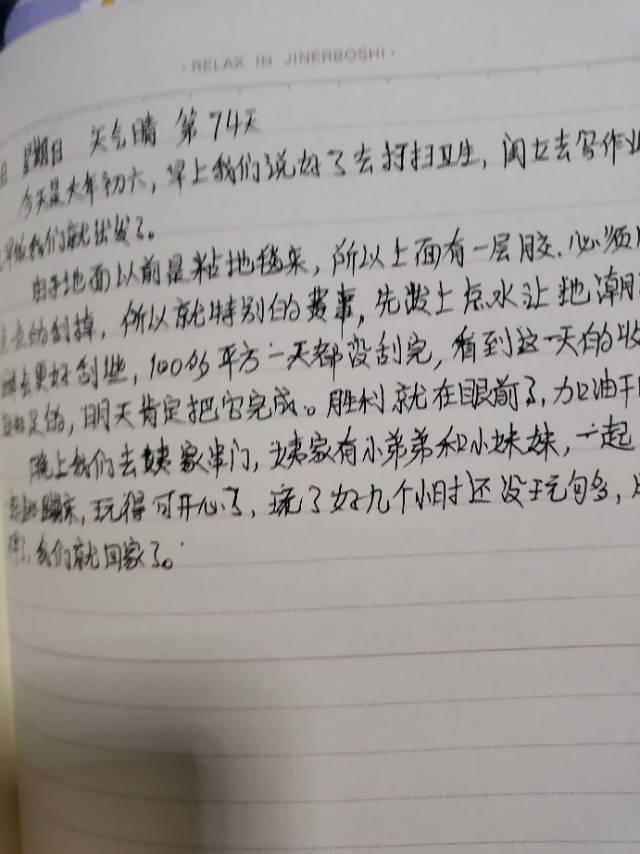 · RELAX IN JINERBOSHI ·
星期日 天气晴 第74天
今天是大年初六，早上我们说好了去打扫卫生，闺女去写作业
我们就出发了。
由于地面以前是粘地毯来，所以上面有一层胶.必须
的刮掉，所以就特别的费事，先泼上点水让地潮
会更好刮些，100多平方一天都没刮完，看到这一天的收
是的，明天肯定把它完成。胜利就在眼前了，加油干
晚上我们去姨家串门，姨家有小弟弟和小妹妹，一起
蹦床，玩得可开心了，疯了好几个小时还没玩句多，
我们就回家了。